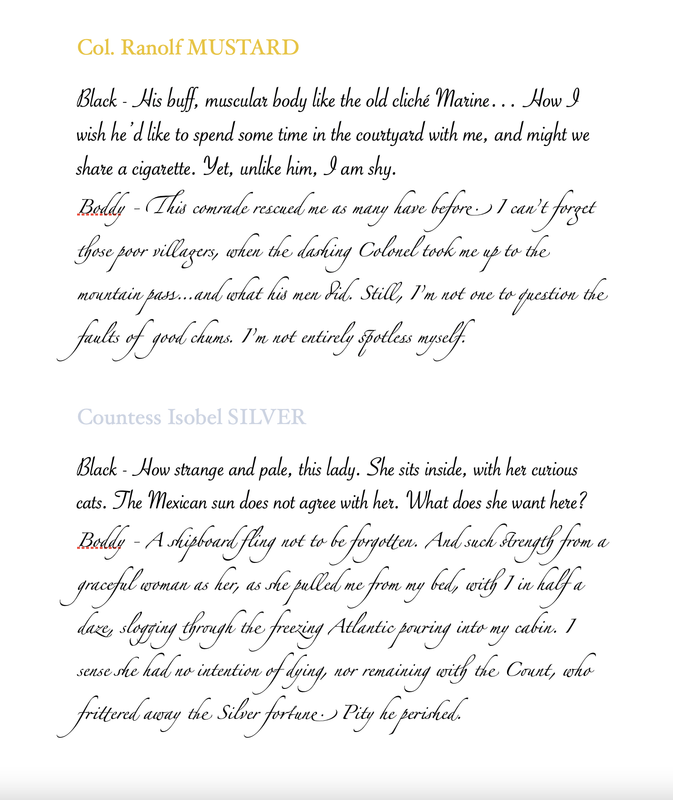 Col. Ranolf MUSTARD
Black - His buff, muscular body like the old cliché Marine… How I
wish he'd like to spend some time in the courtyard with me, and might we
share a cigarette. Yet, unlike him, I am shy.
Boddy - This comrade rescued me as many have before. I can't forget
those poor villagers, when the dashing Colonel took me up to the
mountain pass...and what his men did. Still, I'm not one to question the
faults of good chums. I'm not entirely spotless myself.
Countess Isobel SILVER
Black - How strange and pale, this lady. She sits inside, with her curious
cats. The Mexican sun does not agree with her. What does she want here?
Boddy - A shipboard fling not to be forgotten. And such strength from a
graceful woman as her, as she pulled me from my bed, with I in half a
daze, slogging through the freezing Atlantic pouring into my cabin. I
sense she had no intention of dying, nor remaining with the Count, who
frittered away the Silver fortune. Pity he perished.